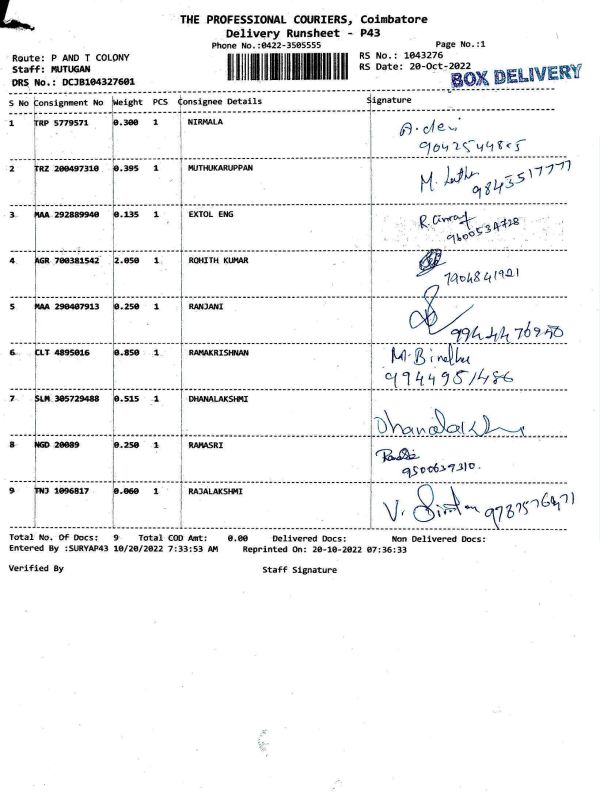 THE PROFESSIONAL COURIERS, Coimbatore
Delivery Runsheet - P43
Phone No.:0422-3505555 Page No.:1
Route: P AND T COLONY RS No.: 1043276
Staff: MUTUGAN RS Date: 20-Oct-2022
DRS No.: DCJB104327601 BOX DELIVERY
S No Consignment No Weight PCS Consignee Details Signature
1 TRP 5779571 0.300 1 NIRMALA A. devi
2 TRZ 200497310 0.395 1 MUTHUKARUPPAN M.
9843517777
3 MAA 292889940 0.135 1 EXTOL ENG R.
9600534728
4 AGR 700381542 2.050 1 ROHITH KUMAR
7904841921
5 MAA 290407913 0.250 1 RANJANI
9944476950
6 CLT 4895016 0.850 1 RAMAKRISHNAN
9944951486
7 SLM 305729488 0.515 1 DHANALAKSHMI
8 NGD 20089 0.250 1 RAMASRI
9500637310.
9 TNJ 1096817 0.060 1 RAJALAKSHMI V.
Total No. Of Docs: 9 Total COD Amt: 0.00 Delivered Docs: Non Delivered Docs:
Entered By :SURYAP43 10/20/2022 7:33:53 AM Reprinted On: 20-10-2022 07:36:33
Verified By Staff Signature